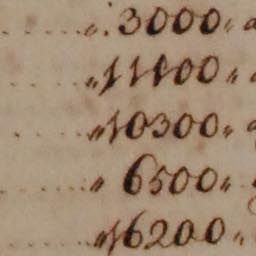 3000
11100
10300
6500
16200